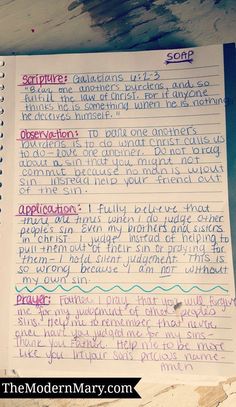 SOAP
Scripture: Galatians 6:2-3
"Bear one anothers burdens, and so
fulfill the law of Christ. For if anyone
thinks he is something when he is nothing,
he deceives himself."
Observation: To bare one anothers
burdens is to do what Christ calls us
to do - Love one another. Do not brag
about a sin that you might not
commit because no man is without
sin. Instead help your friend out
of the sin.
Application: I fully believe that
there are times when I do judge other
peoples sin. Even my brothers and sisters
in Christ I judge instead of helping to
pull them out of their sin or praying for
them - I hold silent judgement. This is
so wrong because I am not without
my own sin.
Prayer: Father I pray that you will forgive
me for my judgement of other peoples
sins. Help me to remember that never
once have you judged me for my sins -
Thank you Father. Help me to be more
like you. In your Son's precious name -
Amen
TheModernMary.com